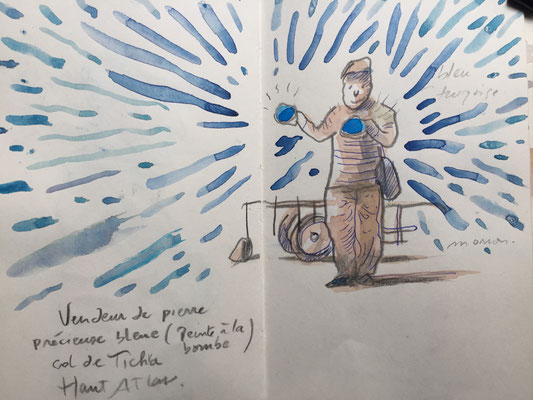 bleu
turquoise
marron.
Vendeur de pierre
précieuse bleue (Peinte à la
bombe)
col de Tichka
Haut Atlas.